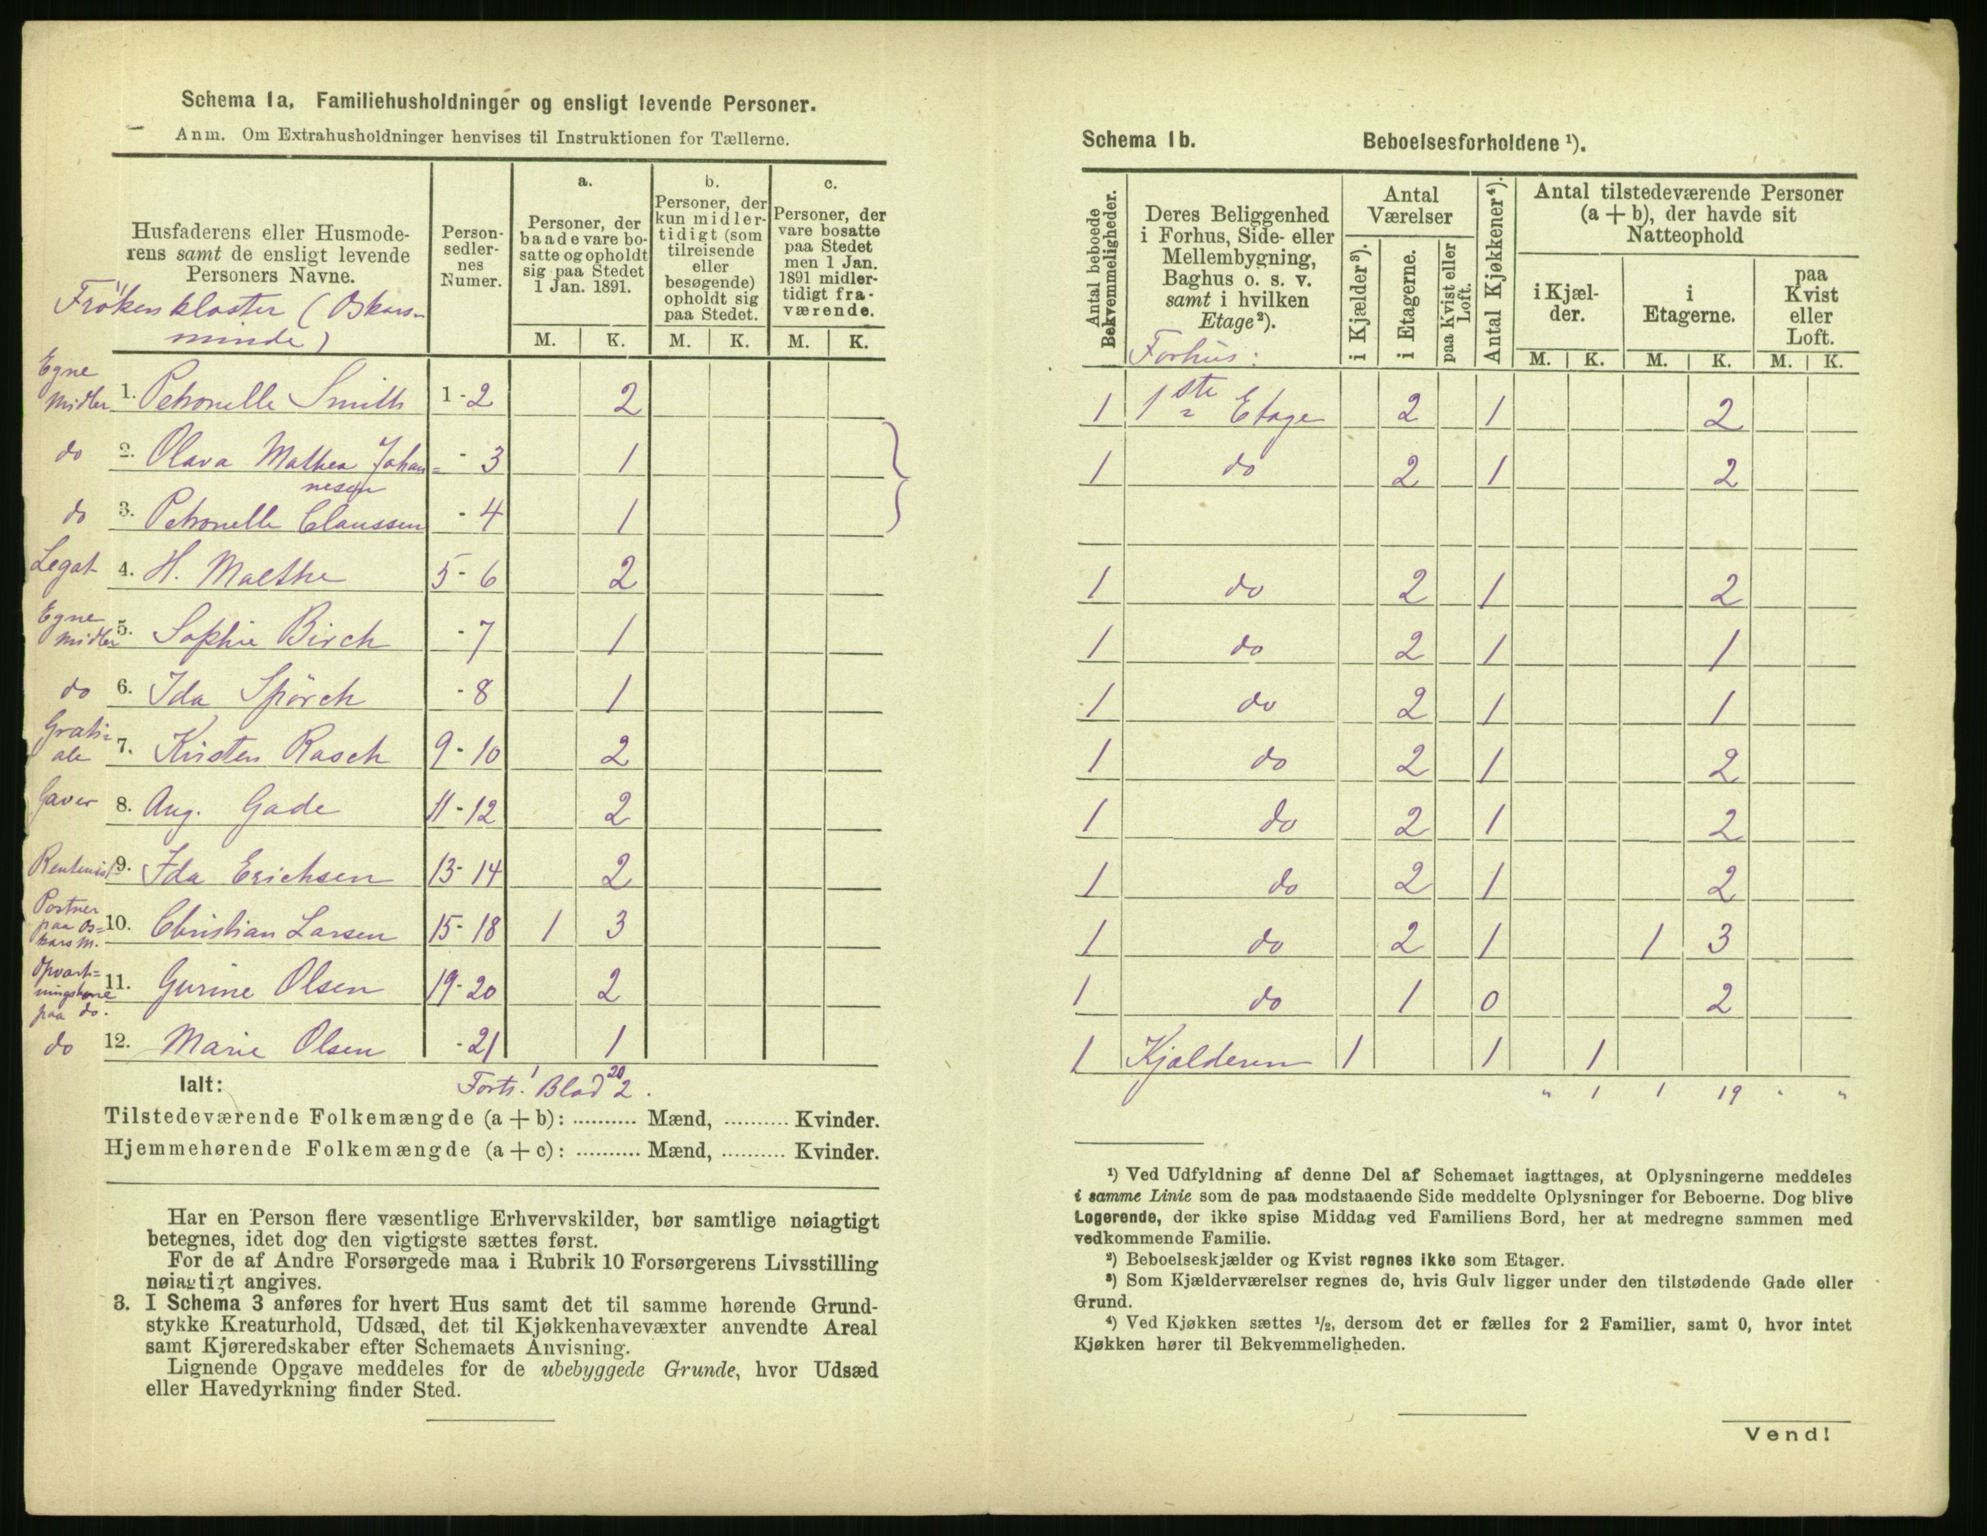 Schema 1a. Familiehusholdninger og ensligt levende Personer.
Anm. Om Extrahusholdninger henvises til Instruktionen for Tællerne.
Husfaderens eller Husmode-
rens samt de ensligt levende
Personers Navne.
Frökenkloster (Oskars-
minde)
Person-
sedler-
nes
Numer.
a.
Personer, der
baade vare bo-
satte og opholdt
sig paa Stedet
1 Jan. 1891.
b.
Personer, der
kun midler-
tidigt (som
tilreisende
eller
besøgende)
opholdt sig
paa Stedet.
c.
Personer, der
vare bosatte
paa Stedet
men 1 Jan.
1891 midler-
tidigt fra-
værende.
M. K. M. K. M. K.
Egne Midler 1. Petronelle Smith 1-2 2
do 2. Olava Mathea Johan= - 3 1
nesen
do 3. Petronelle Claussen - 4 1
Legat 4. H. Malthe 5-6 2
Egne Midler 5. Sophie Birch - 7 1
do 6. Ida Spörck - 8 1
Grati= ale 7. Kirsten Rasch 9-10 2
Gaver 8. Aug. Gade 11-12 2
Rentenist 9. Ida Erichsen 13-14 2
Portner paa Os= kars M. 10. Christian Larsen 15-18 1 3
Opvart= ningskone paa do. 11. Gurine Olsen 19-20 2
do 12. Marie Olsen - 21 1
Ialt: Forts. Blad 2. 1 20
Tilstedeværende Folkemængde (a + b): .......... Mænd, .......... Kvinder.
Hjemmehørende Folkemængde (a + c): .......... Mænd, .......... Kvinder.
Har en Person flere væsentlige Erhvervskilder, bør samtlige nøiagtigt
betegnes, idet dog den vigtigste sættes først.
For de af Andre Forsørgede maa i Rubrik 10 Forsørgerens Livsstilling
nøiagtigt angives.
3. I Schema 3 anføres for hvert Hus samt det til samme hørende Grund-
stykke Kreaturhold, Udsæd, det til Kjøkkenhavevæxter anvendte Areal
samt Kjøreredskaber efter Schemaets Anvisning.
Lignende Opgave meddeles for de ubebyggede Grunde, hvor Udsæd
eller Havedyrkning finder Sted.
Schema 1b. Beboelsesforholdene ¹).
Antal beboede
Bekvemmeligheder.
Deres Beliggenhed
i Forhus, Side- eller
Mellembygning,
Baghus o. s. v.
samt i hvilken
Etage²).
Forhus:
Antal
Værelser
i Kjælder³).
i Etagerne.
paa Kvist eller
Loft.
Antal Kjøkkener⁴).
Antal tilstedeværende Personer
(a + b), der havde sit
Natteophold
i Kjæl-
der.
i
Etagerne.
paa
Kvist
eller
Loft.
M. K. M. K. M. K.
1 1ste Etage 2 1 2
1 do 2 1 2
1 do 2 1 2
1 do 2 1 1
1 do 2 1 1
1 do 2 1 2
1 do 2 1 2
1 do 2 1 2
1 do 2 1 1 3
1 do 1 0 2
1 Kjælderen 1 1 1
" 1 1 19 " "
¹) Ved Udfyldning af denne Del af Schemaet iagttages, at Oplysningerne meddeles
i samme Linie som de paa modstaaende Side meddelte Oplysninger for Beboerne. Dog blive
Logerende, der ikke spise Middag ved Familiens Bord, her at medregne sammen med
vedkommende Familie.
²) Beboelseskjælder og Kvist regnes ikke som Etager.
³) Som Kjælderværelser regnes de, hvis Gulv ligger under den tilstødende Gade eller
Grund.
⁴) Ved Kjøkken sættes ½, dersom det er fælles for 2 Familier, samt 0, hvor intet
Kjøkken hører til Bekvemmeligheden.
Vend!